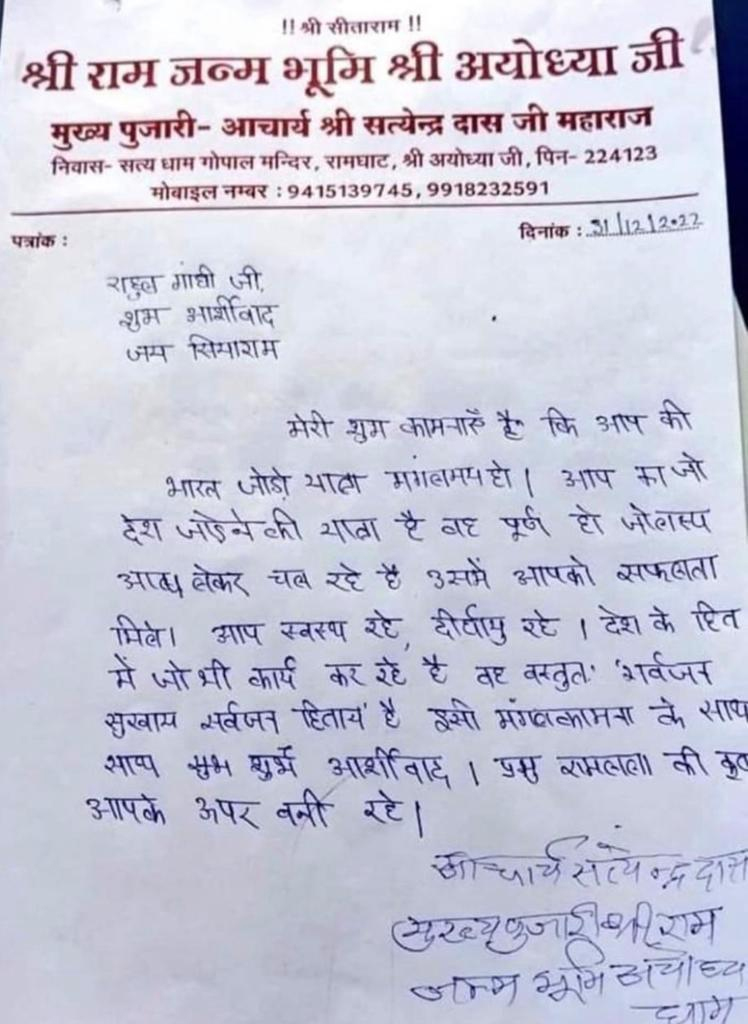 !! श्री सीताराम !!
श्री राम जन्म भूमि श्री अयोध्या जी
मुख्य पुजारी- आचार्य श्री सत्येन्द्र दास जी महाराज
निवास- सत्य धाम गोपाल मन्दिर, रामघाट, श्री अयोध्या जी, पिन- 224123
मोबाइल नम्बर : 9415139745, 9918232591
पत्रांक : दिनांक : 31/12/2022
राहुल गांधी जी,
शुभ आर्शीवाद
जय सियाराम
मेरी शुभ कामनाएँ है कि आप की
भारत जोड़ो यात्रा मंगलमय हो। आप का जो
देश जोड़ने की यात्रा है वह पूर्ण हो जो लक्ष्य
आप लेकर चल रहे है उसमें आपको सफलता
मिले। आप स्वस्थ रहे, दीर्घायु रहे। देश के हित
में जो भी कार्य कर रहे है वह वस्तुतः 'सर्वजन
सुखाय सर्वजन हिताय' है इसी मंगलकामना के साथ
साथ शुभ आर्शीवाद। प्रभु रामलला की कृपा
आपके ऊपर बनी रहे।
आचार्य सत्येन्द्र दास
मुख्य पुजारी श्री राम
जन्म भूमि अयोध्या
धाम